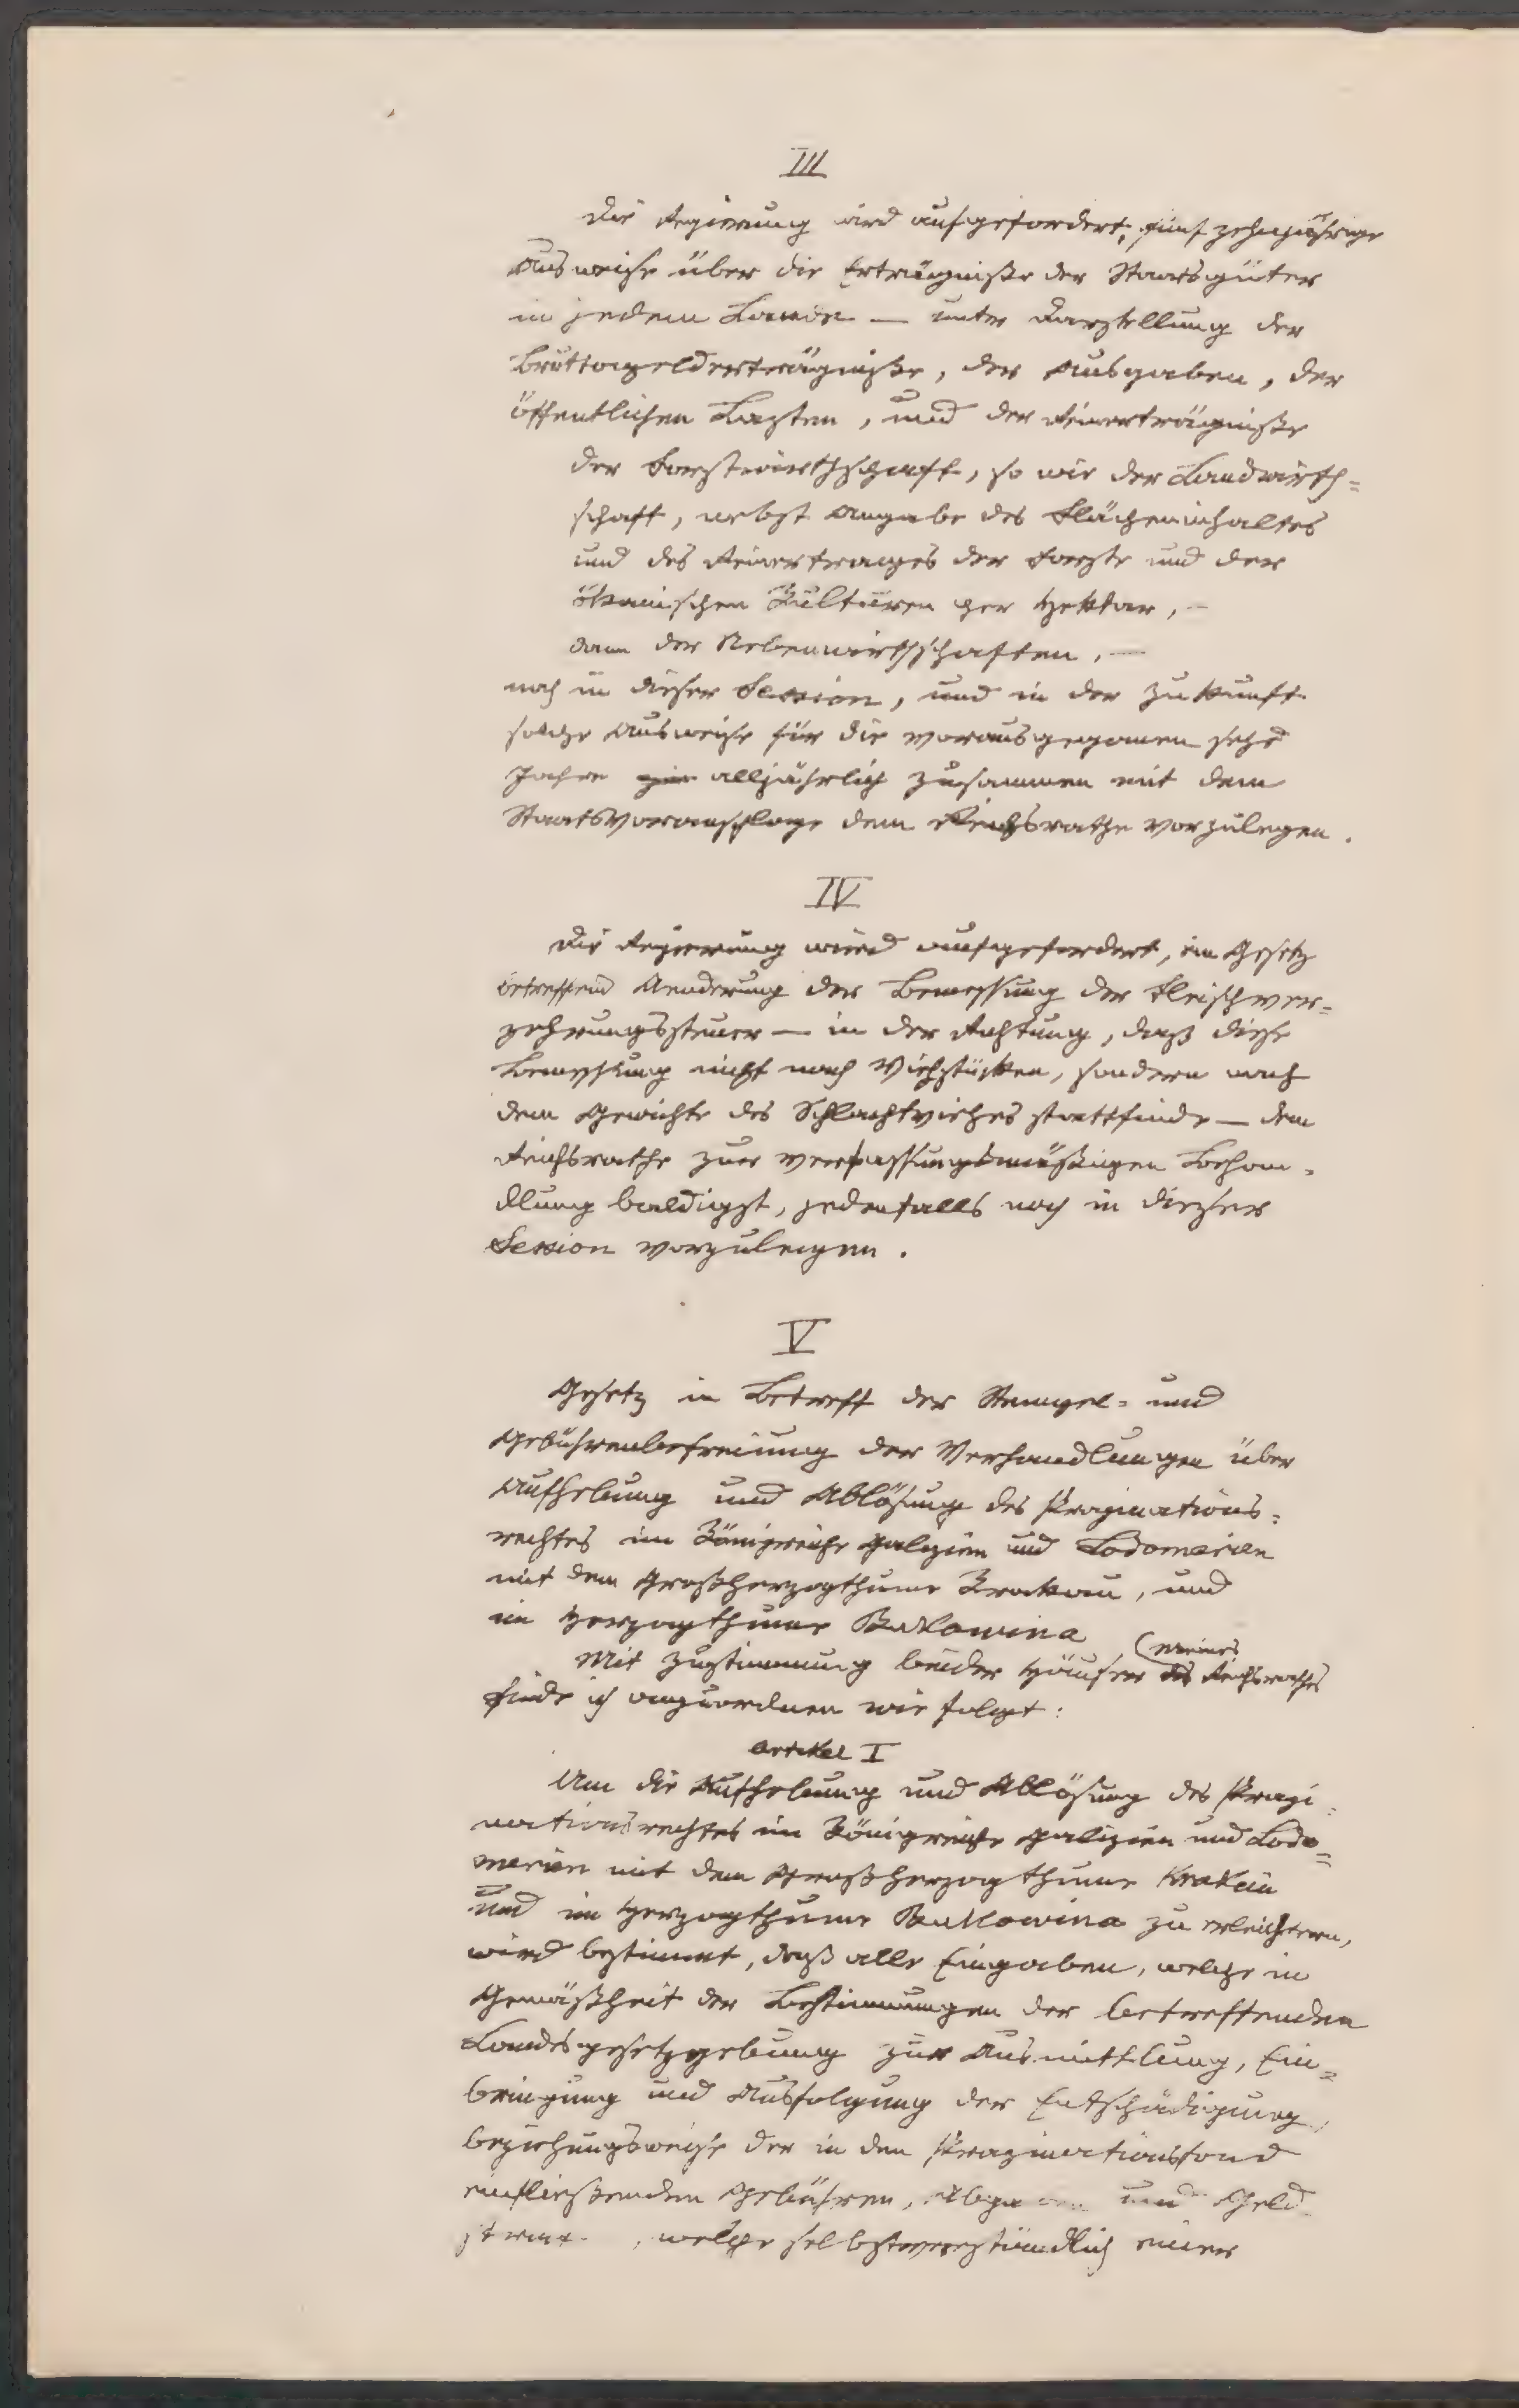 III
Die Regierung wird aufgefordert, fünfzehnjährige
Ausweise über die Erträgniße der Staatsgüter
in jedem Lande — unter Darstellung der
Bruttogelderträgniße, der Ausgaben, der
öffentlichen Lasten, und der Reinerträgniße
der Forstwirthschaft, so wie der Landwirth=
schaft, nebst Angabe des Flächeninhaltes
und des Reinertrages der Forste und der
ökonomischen Kulturen per Hektar, —
dann der Nebenwirthschaften, —
noch in dieser Session, und in der Zukunft
solche Ausweise für die vorausgegangenen sechs
Jahre alljährlich zusammen mit dem
Staatsvoranschlage dem Reichsrathe vorzulegen.
IV
Die Regierung wird aufgefordert, ein Gesetz
betreffend Aenderung der Bemessung der Fleischver=
zehrungssteuer — in der Richtung, daß diese
Bemessung nicht nach Viehstücken, sondern nach
dem Gewichte des Schlachtviehes stattfinde — dem
Reichsrathe zur verfassungsmäßigen Behan=
dlung baldigst, jedenfalls noch in dieser
Session vorzulegen.
V
Gesetz in Betreff der Stempel= und
Gebührenbefreiung der Verhandlungen über
Aufhebung und Ablösung des Propinations=
rechtes im Königreiche Galizien und Lodomerien
mit dem Großherzogthume Krakau, und
im Herzogthume Bukowina
Mit Zustimmung beider Häuser des (meines) Reichsrathes
finde ich anzuordnen wie folgt:
Artikel I
Um die Aufhebung und Ablösung des Propi=
nationsrechtes im Königreiche Galizien und Lodo=
merien mit dem Großherzogthume Krakau
und im Herzogthume Bukowina zu erleichtern,
wird bestimmt, daß alle Eingaben, welche in
Gemäßheit der Bestimmungen der betreffenden
Landesgesetzgebung zur Ausmittlung, Ein=
bringung und Ausfolgung der Entschädigung,
beziehungsweise der in den Propinationsfond
einfließenden Gebühren, Abgaben und Geld
welche selbstverständlich einer